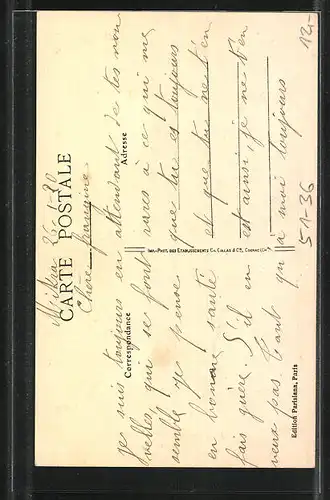 26-1-20
CARTE POSTALE
Chère frangine
Correspondance
Adresse
je suis toujours en attendant de tes nou
velles, qui se font rares à ce qui me
semble je pense que tu es toujours
en bonne santé et que tu ne t'en
fais guère. S'il en est ainsi, je ne t'en
veux pas tant qu'à moi toujours
IMP.-PHOT. DES ETABLISSEMENTS CH. COLLAS & Cie, COGNAC
Edition Parisiana, Paris
51-36
12,-